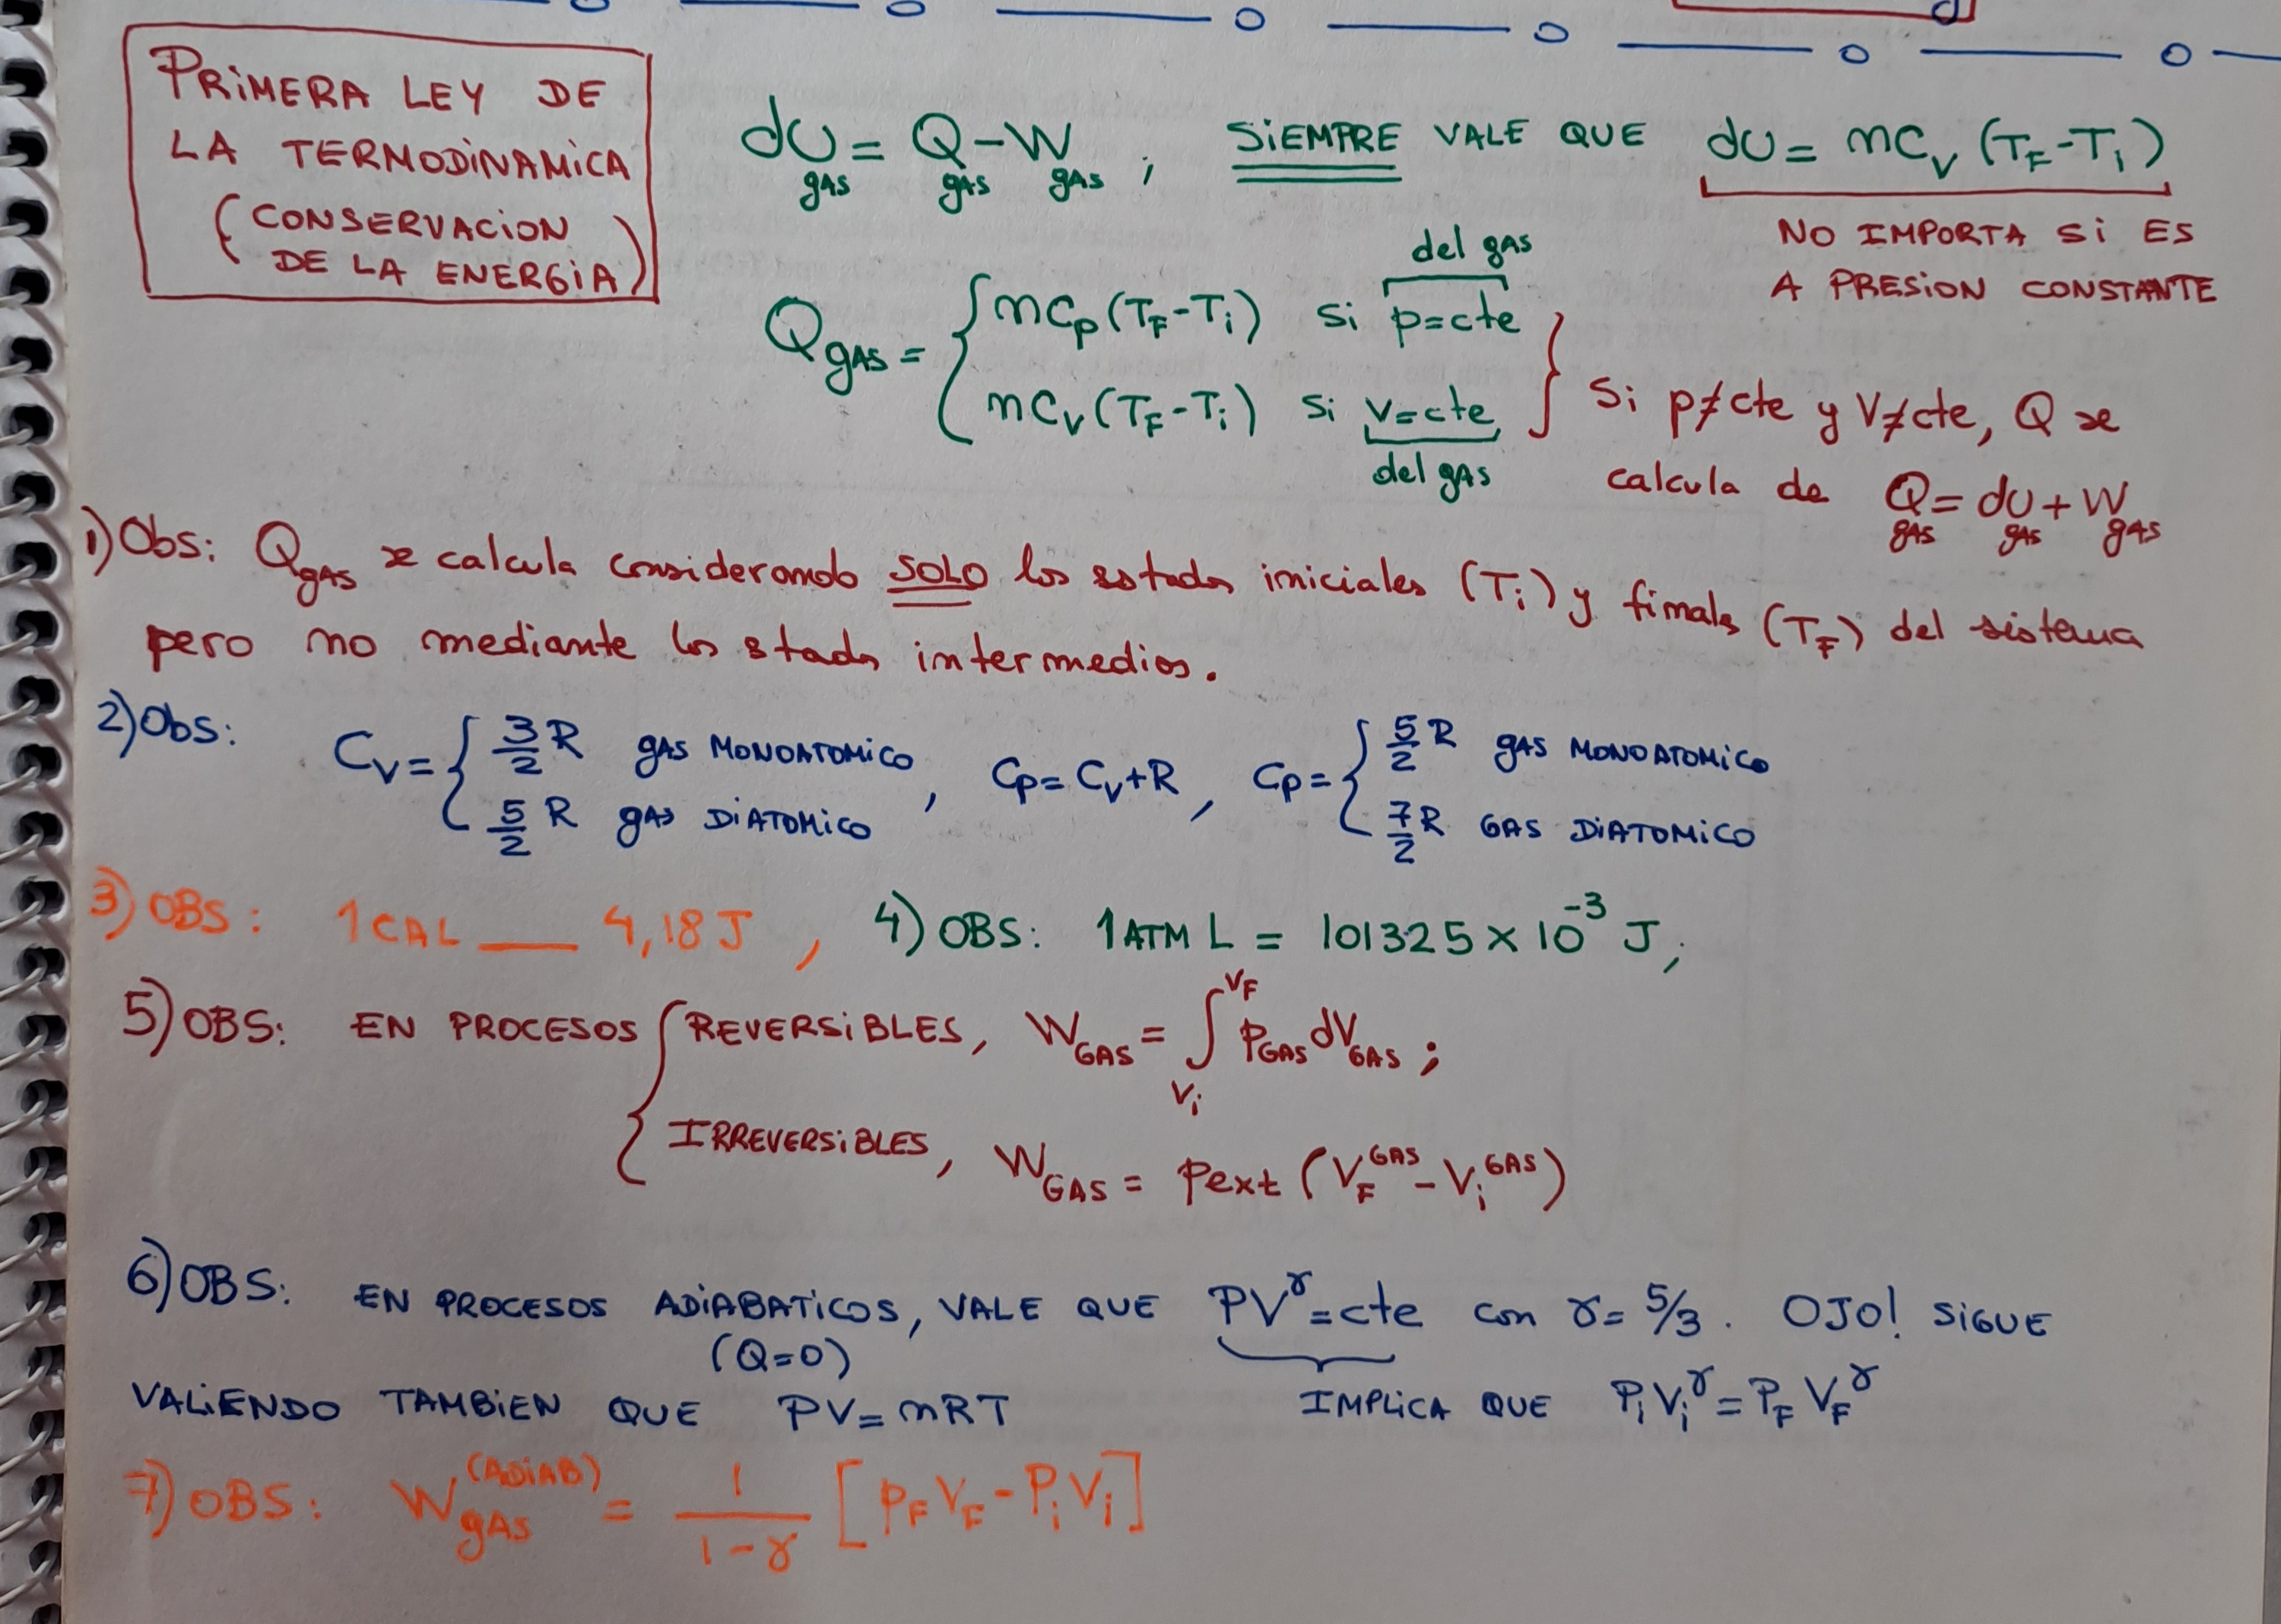 PRIMERA LEY DE
LA TERMODINAMICA
(CONSERVACION
DE LA ENERGIA)
dU gas = Q gas - W gas ; SIEMPRE VALE QUE dU = nCv (TF-Ti)
NO IMPORTA SI ES
A PRESION CONSTANTE
del gas
Qgas = { nCp (TF-Ti) si p=cte
nCv (TF-Ti) si V=cte } Si p≠cte y V≠cte, Q se
del gas
calcula de Q gas = dU gas + W gas
1) Obs: Qgas se calcula considerando SOLO los estados iniciales (Ti) y finales (TF) del sistema
pero no mediante los estados intermedios.
2) Obs: Cv = { 3/2 R gas MONOATOMICO, Cp = Cv+R, Cp = { 5/2 R gas MONOATOMICO
5/2 R gas DIATOMICO 7/2 R GAS DIATOMICO
3) OBS: 1 CAL ___ 4,18 J , 4) OBS: 1 ATM L = 101325 x 10⁻³ J;
5) OBS: EN PROCESOS { REVERSIBLES, WGAS = ∫ Vi VF PGAS dVGAS ;
IRREVERSIBLES, WGAS = Pext (VF^GAS - Vi^GAS)
6) OBS: EN PROCESOS ADIABATICOS, VALE QUE PV^γ = cte con γ = 5/3. OJO! SIGUE
(Q=0)
VALIENDO TAMBIEN QUE PV = nRT IMPLICA QUE Pi Vi^γ = PF VF^γ
7) OBS: Wgas^(ADIAB) = 1/(1-γ) [PF VF - Pi Vi]